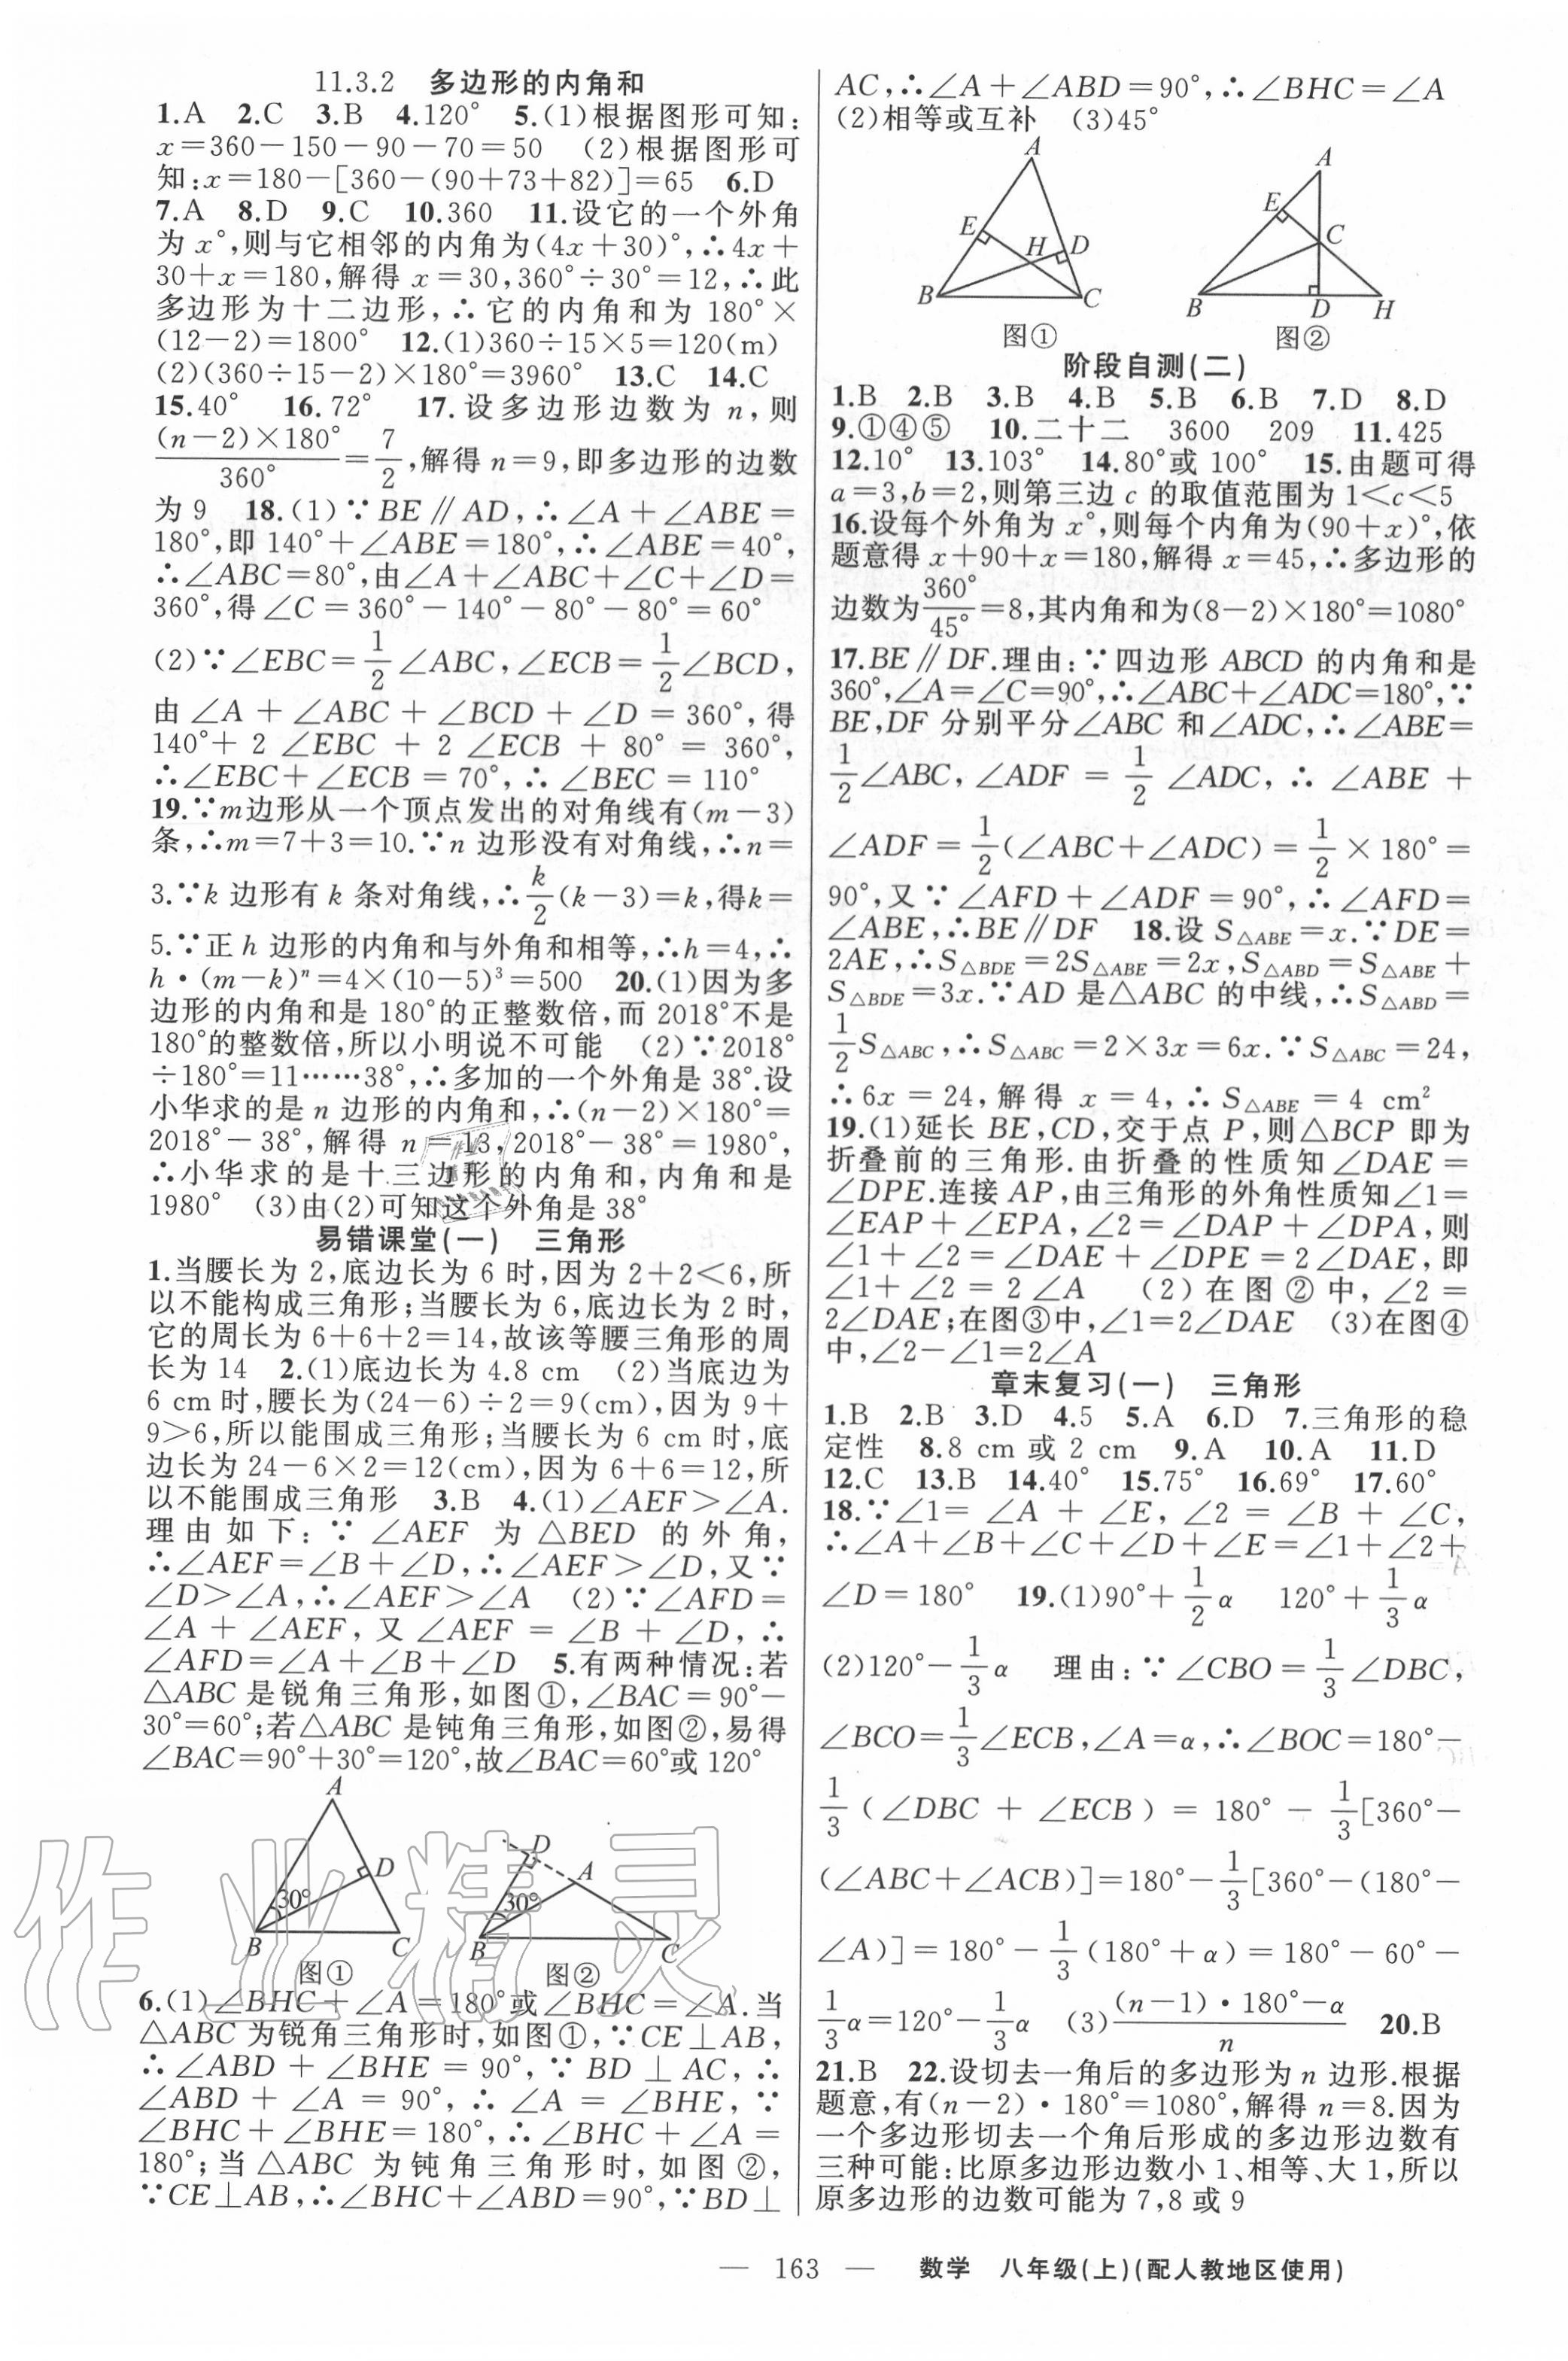 11.3.2 多边形的内角和
1.A 2.C 3.B 4.120° 5.(1)根据图形可知:
x=360-150-90-70=50 (2)根据图形可
知:x=180-[360-(90+73+82)]=65 6.D
7.A 8.D 9.C 10.360 11.设它的一个外角
为 x°,则与它相邻的内角为(4x+30)°,∴4x+
30+x=180,解得 x=30,360°÷30°=12,∴此
多边形为十二边形,∴它的内角和为 180°×
(12-2)=1800° 12.(1)360÷15×5=120(m)
(2)(360÷15-2)×180°=3960° 13.C 14.C
15.40° 16.72° 17.设多边形边数为 n,则
(n-2)×180°/360°=7/2,解得 n=9,即多边形的边数
为 9 18.(1)∵BE∥AD,∴∠A+∠ABE=
180°,即 140°+∠ABE=180°,∴∠ABE=40°,
∴∠ABC=80°,由∠A+∠ABC+∠C+∠D=
360°,得∠C=360°-140°-80°-80°=60°
(2)∵∠EBC=1/2∠ABC,∠ECB=1/2∠BCD,
由∠A+∠ABC+∠BCD+∠D=360°,得
140°+2∠EBC+2∠ECB+80°=360°,
∴∠EBC+∠ECB=70°,∴∠BEC=110°
19.∵m边形从一个顶点发出的对角线有(m-3)
条,∴m=7+3=10.∵n 边形没有对角线,∴n=
3.∵k 边形有 k 条对角线,∴k/2(k-3)=k,得k=
5.∵正 h 边形的内角和与外角和相等,∴h=4,∴
h·(m-k)ⁿ=4×(10-5)³=500 20.(1)因为多
边形的内角和是 180°的正整数倍,而 2018°不是
180°的整数倍,所以小明说不可能 (2)∵2018°
÷180°=11……38°,∴多加的一个外角是 38°.设
小华求的是 n 边形的内角和,∴(n-2)×180°=
2018°-38°,解得 n=13,2018°-38°=1980°,
∴小华求的是十三边形的内角和,内角和是
1980° (3)由(2)可知这个外角是 38°
易错课堂(一) 三角形
1.当腰长为 2,底边长为 6 时,因为 2+2<6,所
以不能构成三角形;当腰长为 6,底边长为 2 时,
它的周长为 6+6+2=14,故该等腰三角形的周
长为 14 2.(1)底边长为 4.8 cm (2)当底边为
6 cm 时,腰长为(24-6)÷2=9(cm),因为 9+
9>6,所以能围成三角形;当腰长为 6 cm 时,底
边长为 24-6×2=12(cm),因为 6+6=12,所
以不能围成三角形 3.B 4.(1)∠AEF>∠A.
理由如下:∵∠AEF 为△BED 的外角,
∴∠AEF=∠B+∠D,∴∠AEF>∠D,又∵
∠D>∠A,∴∠AEF>∠A (2)∵∠AFD=
∠A+∠AEF,又∠AEF=∠B+∠D,∴
∠AFD=∠A+∠B+∠D 5.有两种情况:若
△ABC 是锐角三角形,如图①,∠BAC=90°-
30°=60°;若△ABC 是钝角三角形,如图②,易得
∠BAC=90°+30°=120°,故∠BAC=60°或 120°
A
D
30°
B C
图①
D
A
30°
B C
图②
6.(1)∠BHC+∠A=180°或∠BHC=∠A.当
△ABC 为锐角三角形时,如图①,∵CE⊥AB,
∴∠ABD+∠BHE=90°,∵BD⊥AC,∴
∠ABD+∠A=90°,∴∠A=∠BHE,∵
∠BHC+∠BHE=180°,∴∠BHC+∠A=
180°;当△ABC 为钝角三角形时,如图②,
∵CE⊥AB,∴∠BHC+∠ABD=90°,∵BD⊥
AC,∴∠A+∠ABD=90°,∴∠BHC=∠A
(2)相等或互补 (3)45°
A
E
H D
B C
图①
A
E
C
B D H
图②
阶段自测(二)
1.B 2.B 3.B 4.B 5.B 6.B 7.D 8.D
9.①④⑤ 10.二十二 3600 209 11.425
12.10° 13.103° 14.80°或 100° 15.由题可得
a=3,b=2,则第三边 c 的取值范围为 1<c<5
16.设每个外角为 x°,则每个内角为(90+x)°,依
题意得 x+90+x=180,解得 x=45,∴多边形的
边数为360°/45°=8,其内角和为(8-2)×180°=1080°
17.BE∥DF.理由:∵四边形 ABCD 的内角和是
360°,∠A=∠C=90°,∴∠ABC+∠ADC=180°,∵
BE,DF 分别平分∠ABC 和∠ADC,∴∠ABE=
1/2∠ABC,∠ADF=1/2∠ADC,∴∠ABE+
∠ADF=1/2(∠ABC+∠ADC)=1/2×180°=
90°,又∵∠AFD+∠ADF=90°,∴∠AFD=
∠ABE,∴BE∥DF 18.设 S△ABE=x.∵DE=
2AE,∴S△BDE=2S△ABE=2x,S△ABD=S△ABE+
S△BDE=3x.∵AD 是△ABC 的中线,∴S△ABD=
1/2S△ABC,∴S△ABC=2×3x=6x.∵S△ABC=24,
∴6x=24,解得 x=4,∴S△ABE=4 cm²
19.(1)延长 BE,CD,交于点 P,则△BCP 即为
折叠前的三角形.由折叠的性质知∠DAE=
∠DPE.连接 AP,由三角形的外角性质知∠1=
∠EAP+∠EPA,∠2=∠DAP+∠DPA,则
∠1+∠2=∠DAE+∠DPE=2∠DAE,即
∠1+∠2=2∠A (2)在图②中,∠2=
2∠DAE;在图③中,∠1=2∠DAE (3)在图④
中,∠2-∠1=2∠A
章末复习(一) 三角形
1.B 2.B 3.D 4.5 5.A 6.D 7.三角形的稳
定性 8.8 cm 或 2 cm 9.A 10.A 11.D
12.C 13.B 14.40° 15.75° 16.69° 17.60°
18.∵∠1=∠A+∠E,∠2=∠B+∠C,
∴∠A+∠B+∠C+∠D+∠E=∠1+∠2+
∠D=180° 19.(1)90°+1/2α 120°+1/3α
(2)120°-1/3α 理由:∵∠CBO=1/3∠DBC,
∠BCO=1/3∠ECB,∠A=α,∴∠BOC=180°-
1/3(∠DBC+∠ECB)=180°-1/3[360°-
(∠ABC+∠ACB)]=180°-1/3[360°-(180°-
∠A)]=180°-1/3(180°+α)=180°-60°-
1/3α=120°-1/3α (3)(n-1)·180°-α/n 20.B
21.B 22.设切去一角后的多边形为 n 边形.根据
题意,有(n-2)·180°=1080°,解得 n=8.因为
一个多边形切去一个角后形成的多边形边数有
三种可能:比原多边形边数小 1、相等、大 1,所以
原多边形的边数可能为 7,8 或 9
— 163 — 数学 八年级(上)(配人教地区使用)
作业精灵